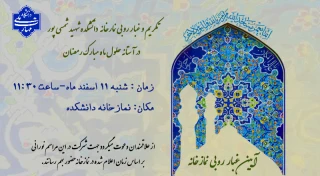 تکریم و غبار روبی نمازخانه دانشکده شهید شمسی پور
در آستانه حلول ماه مبارک رمضان
زمان : شنبه ۱۱ اسفند ماه-ساعت ۱۱:۳۰
مکان: نمازخانه دانشکده
از علاقمندان دعوت میگردد جهت شرکت در این مراسم نورانی
بر اساس زمان اعلام شده در نمازخانه حضور بهم رسانند.
آیین غبار روبی نمازخانه